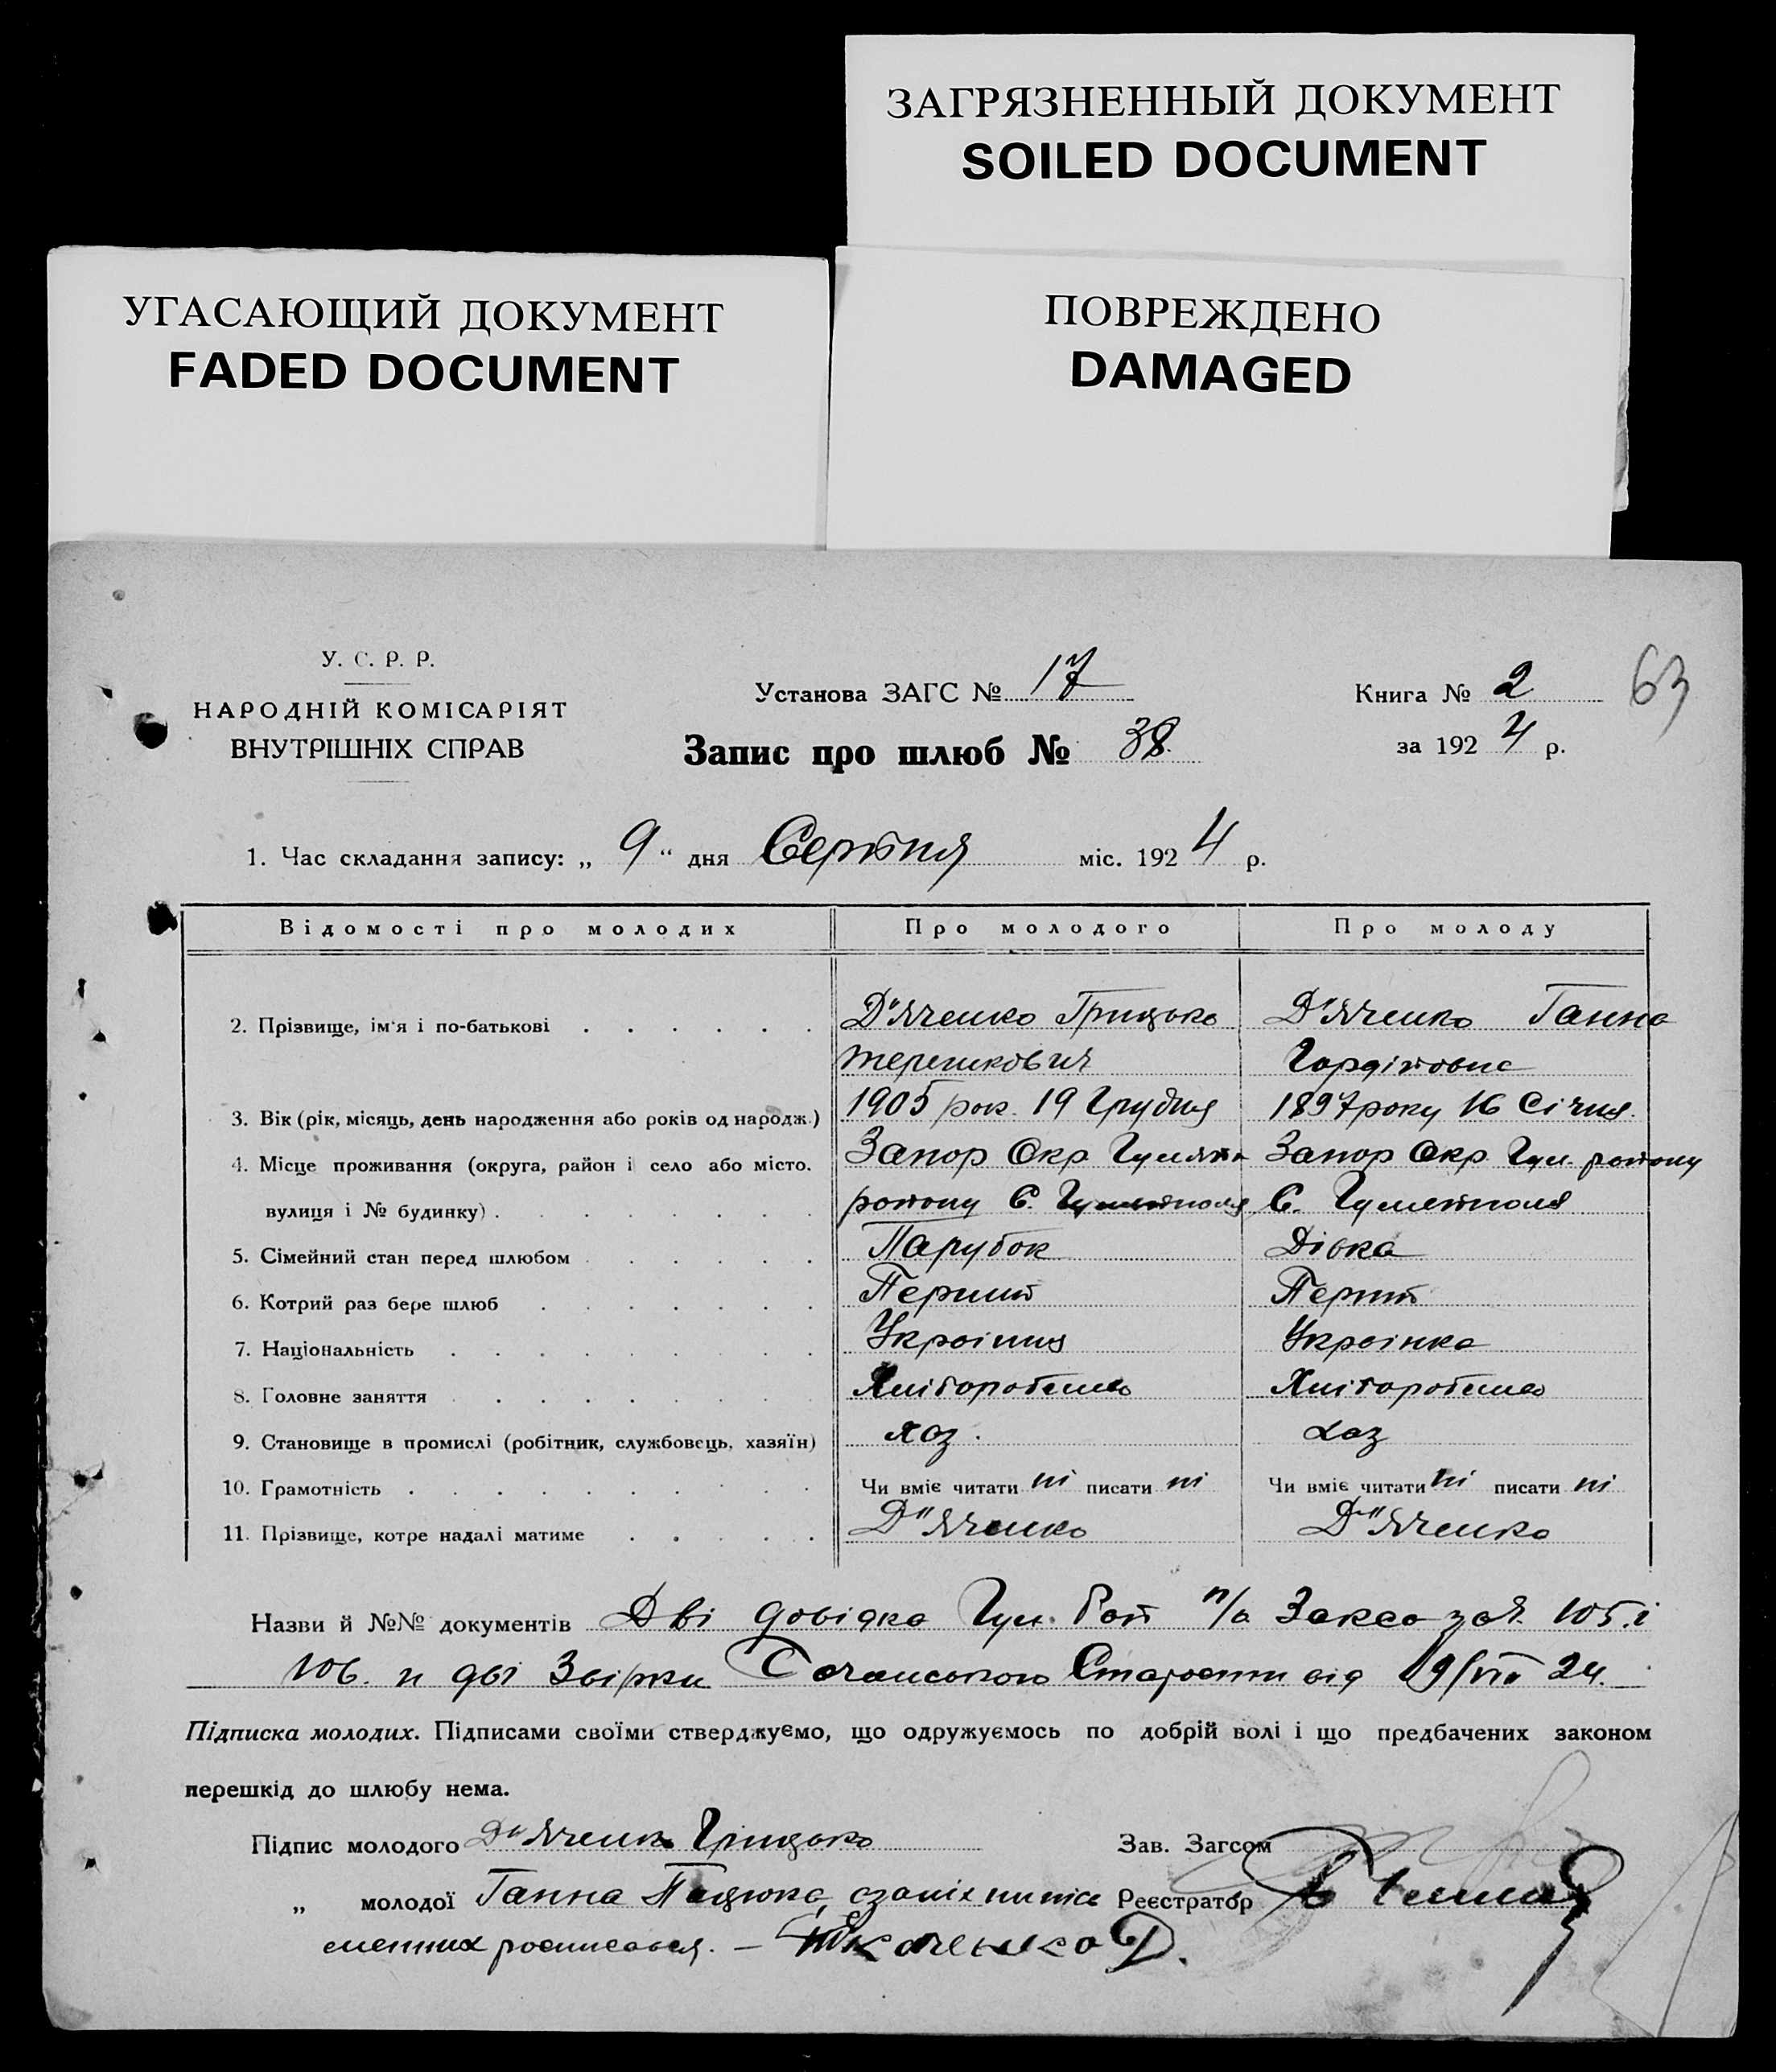 ЗАГРЯЗНЕННЫЙ ДОКУМЕНТ
SOILED DOCUMENT
УГАСАЮЩИЙ ДОКУМЕНТ
FADED DOCUMENT
ПОВРЕЖДЕНО
DAMAGED
У. С. Р. Р.
НАРОДНІЙ КОМІСАРІЯТ
ВНУТРІШНІХ СПРАВ
Установа ЗАГС № 17
Запис про шлюб № 38.
Книга № 2
за 1924 р.
63
1. Час складання запису: „ 9 “ дня Серпня міс. 1924 р.
Відомості про молодих Про молодого Про молоду
2. Прізвище, ім'я і по-батькові Д"яченко Грицько Д"яченко Ганна
Терешкович Гордіївна
3. Вік (рік, місяць, день народження або років од народж.) 1905 рок. 19 Грудня 1897 року 16 Січня.
4. Місце проживання (округа, район і село або місто, Запор Окр Запор Окр Гул. району
вулиця і № будинку) району С. Гуляйполя С. Гуляйполя
5. Сімейний стан перед шлюбом Парубок Дівка
6. Котрий раз бере шлюб Перший Перший
7. Національність Украінка
8. Головне заняття Хліборобство Хліборобство
9. Становище в промислі (робітник, службовець, хазяїн) хаз. хаз
10. Грамотність Чи вміє читати ні писати ні Чи вміє читати ні писати ні
11. Прізвище, котре надалі матиме Д"яченко Д"яченко
Назви й №№ документів Дві довідка Гул. Рай за № 105. і
106. и дві Звірки від 19/VII 24.
Підписка молодих. Підписами своїми стверджуємо, що одружуємось по добрій волі і що предбачених законом
перешкід до шлюбу нема.
Підпис молодого Д"яченко Грицько Зав. Загсом
„ молодої Ганна Реєстратор
росписався. — Ткаченко Д.